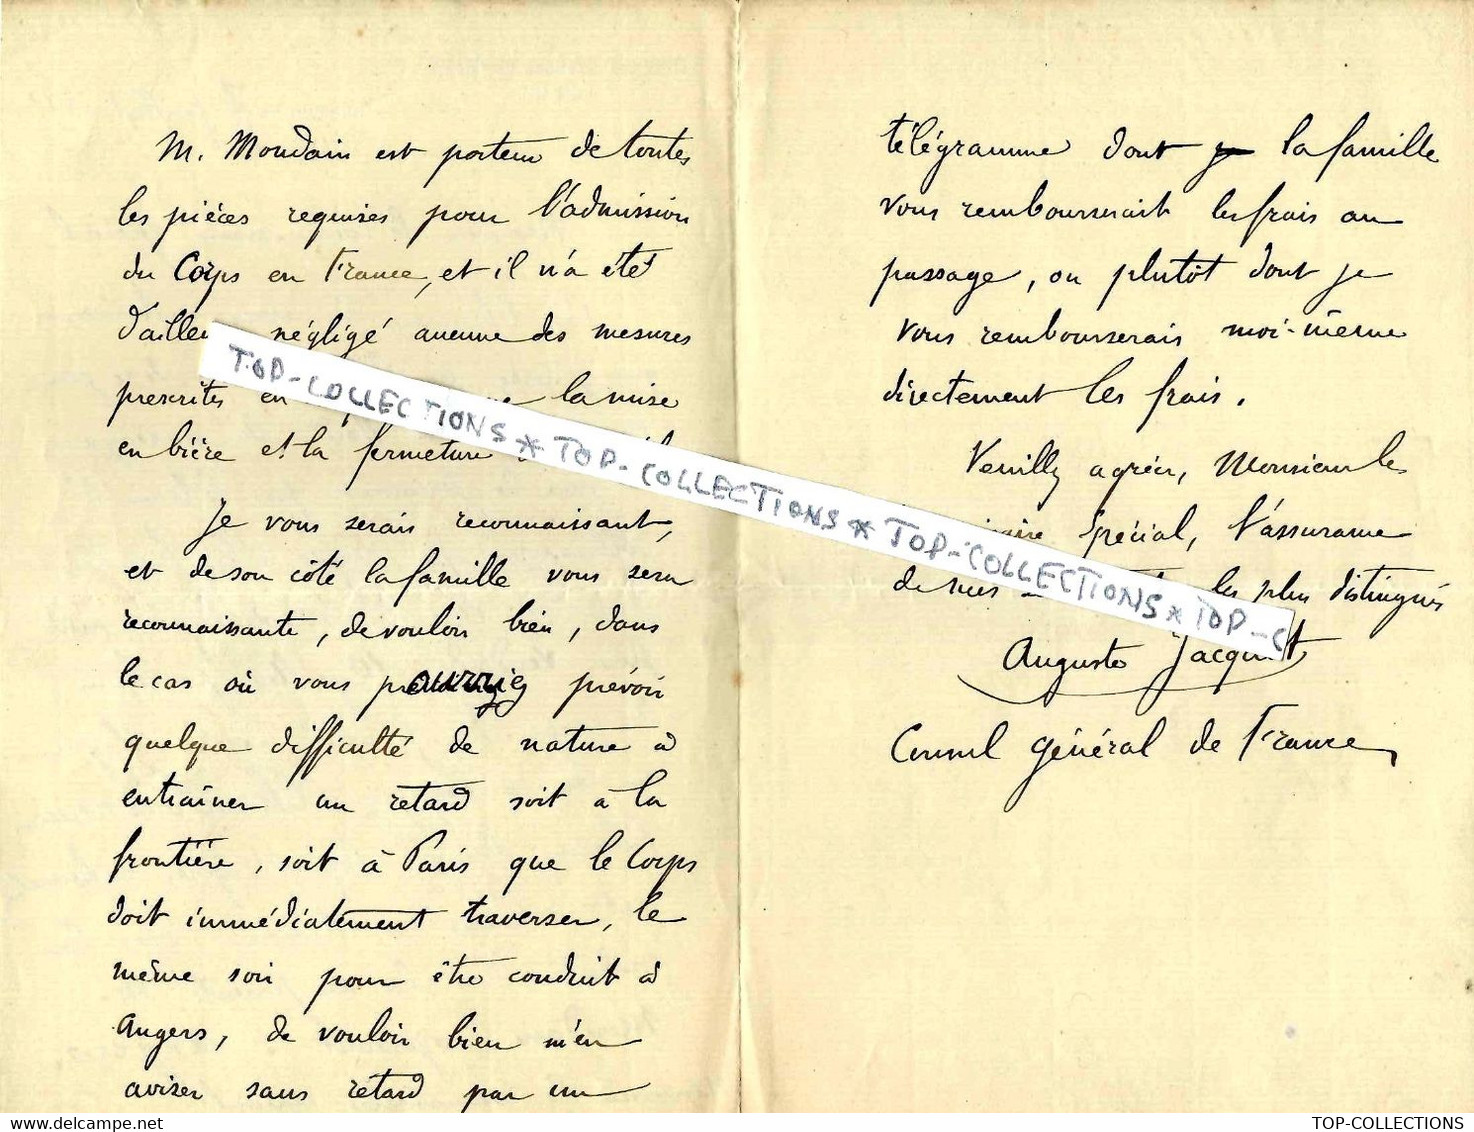 M. Mondain est porteur de toutes
les pièces requises pour l'admission
du Corps en France, et il n'a été
négligé aucune des mesures
prescrites en la mise
en bière et la fermeture
Je vous serais reconnaissant,
et de son côté la famille vous sera
reconnaissante, de vouloir bien, dans
le cas où vous prévoir
quelque difficulté de nature à
entraîner un retard soit à la
frontière, soit à Paris que le Corps
doit immédiatement traverser, le
même soir pour être conduit à
Angers, de vouloir bien m'en
aviser sans retard par un
télégramme dont la famille
vous rembourserait les frais au
passage, ou plutôt dont je
vous rembourserais moi-même
directement les frais.
Veuillez agréer, Monsieur le
Spécial, l'assurance
de mes les plus distingués
Auguste Jacquot
Consul général de France
TOP-COLLECTIONS * TOP-COLLECTIONS * TOP-COLLECTIONS * TOP-C
TOP-COLLECTIONS